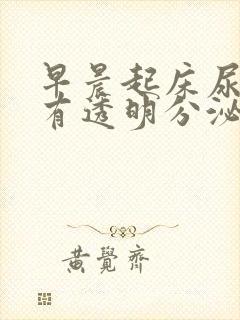 早晨起床尿
有透明分泌
黄覺齊